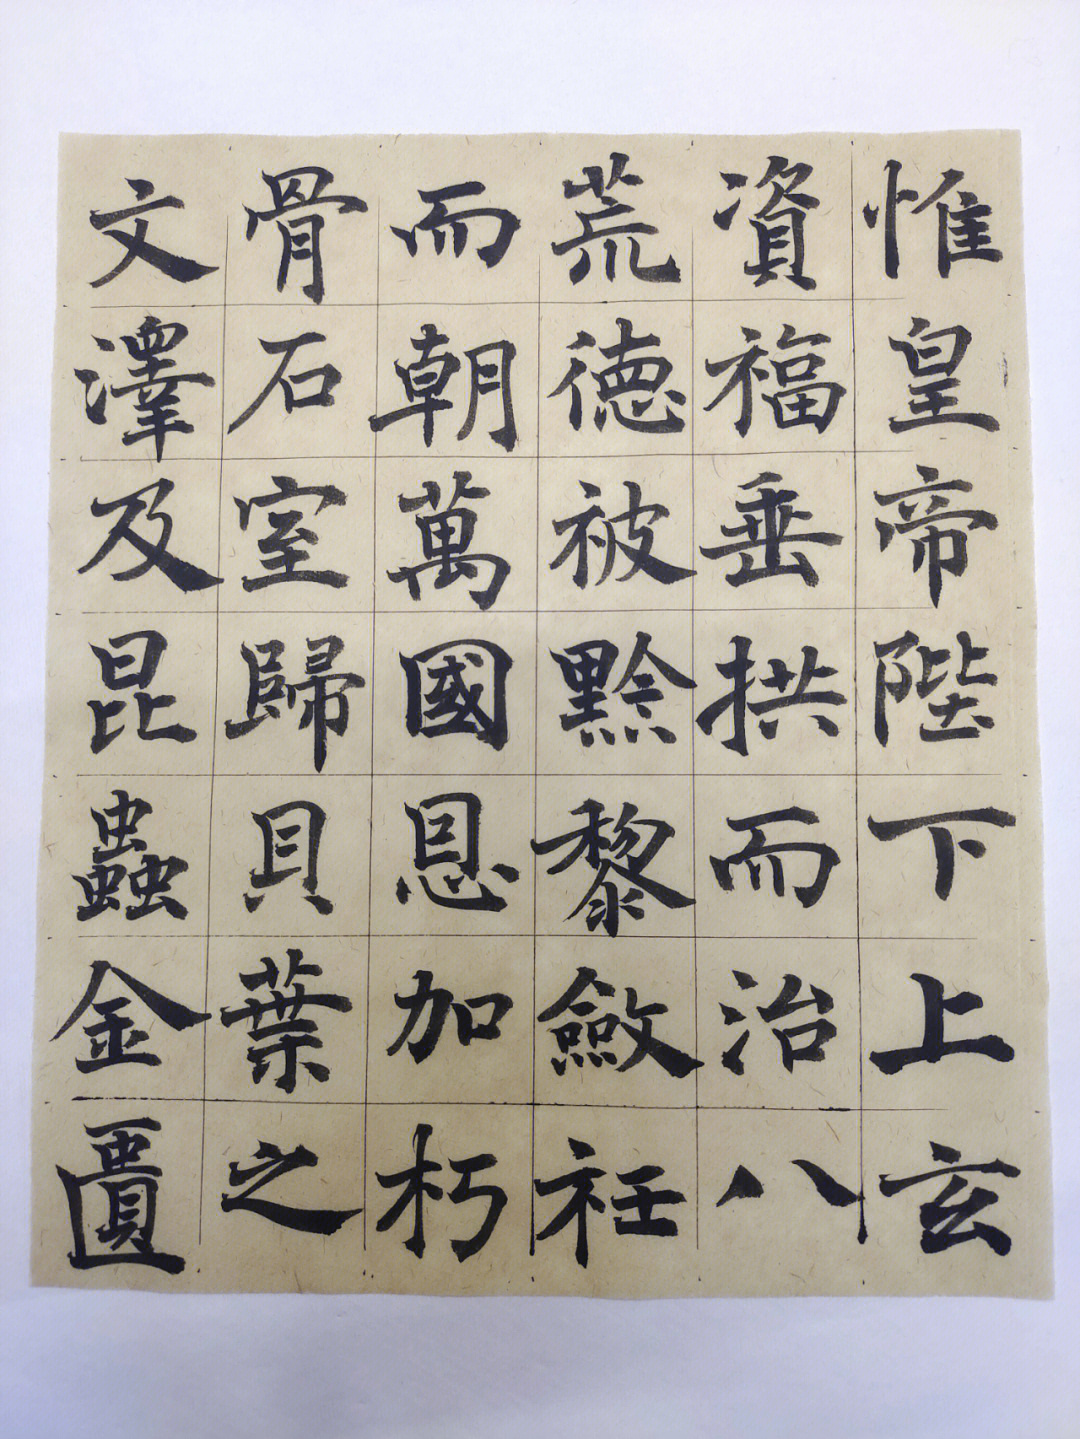 惟皇帝陛下上玄
資福垂拱而治八
荒德被黔黎斂衽
而朝萬國恩加朽
骨石室歸貝葉之
文澤及昆蟲金匱